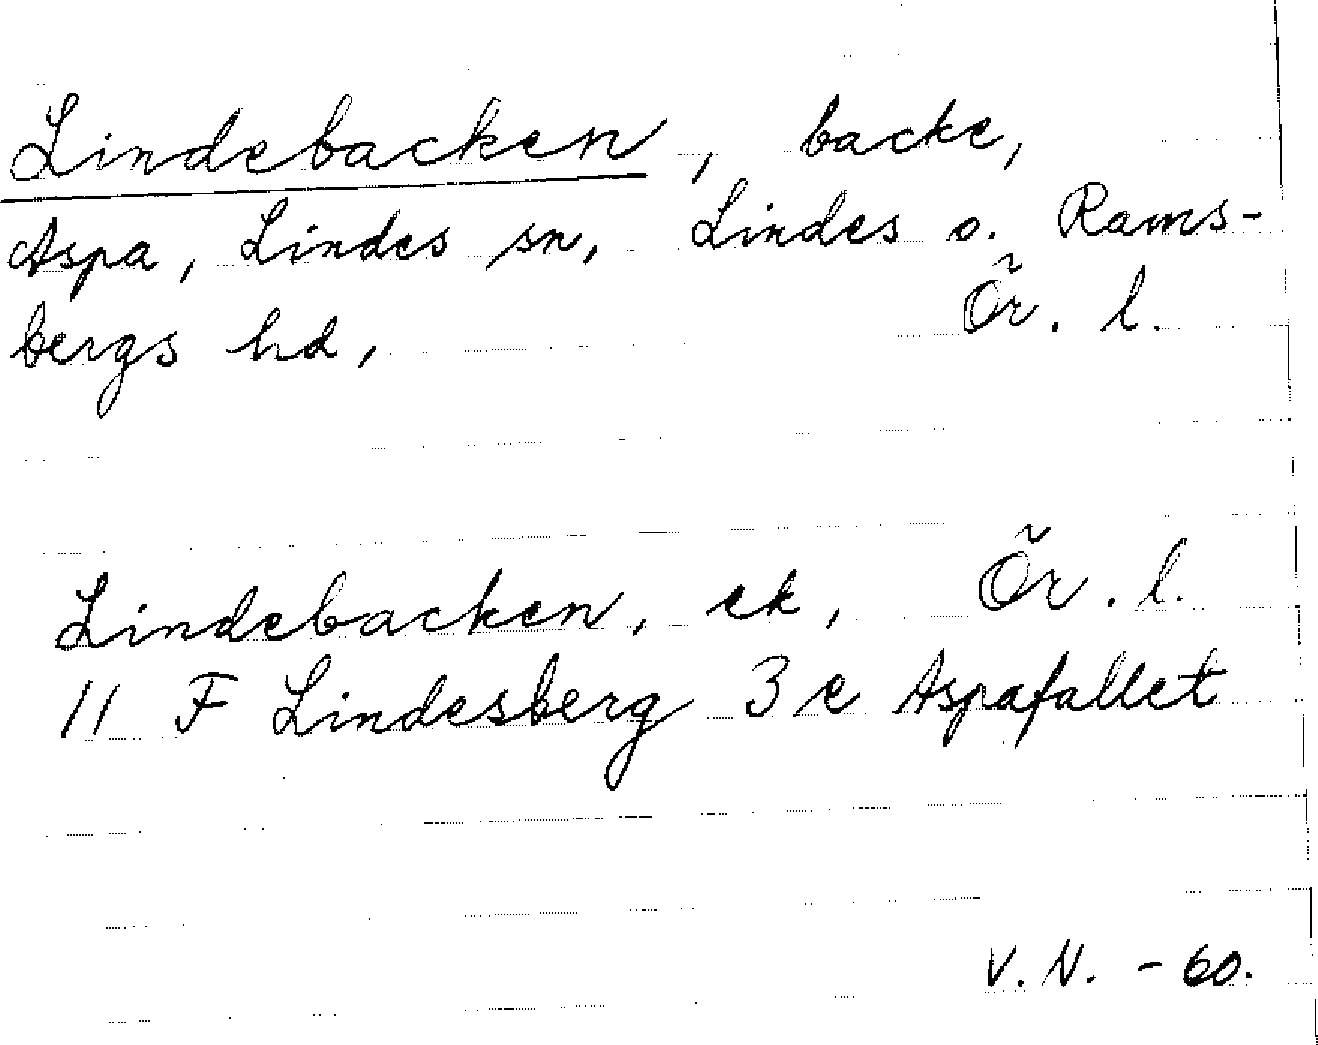 Lindebacken, backe,
Aspa, Lindes sn, Lindes o. Rams-
bergs hd, Ör. l.
Lindebacken, ek, Ör. l.
11 F Lindesberg 3 e Aspafallet
V. N. - 60.